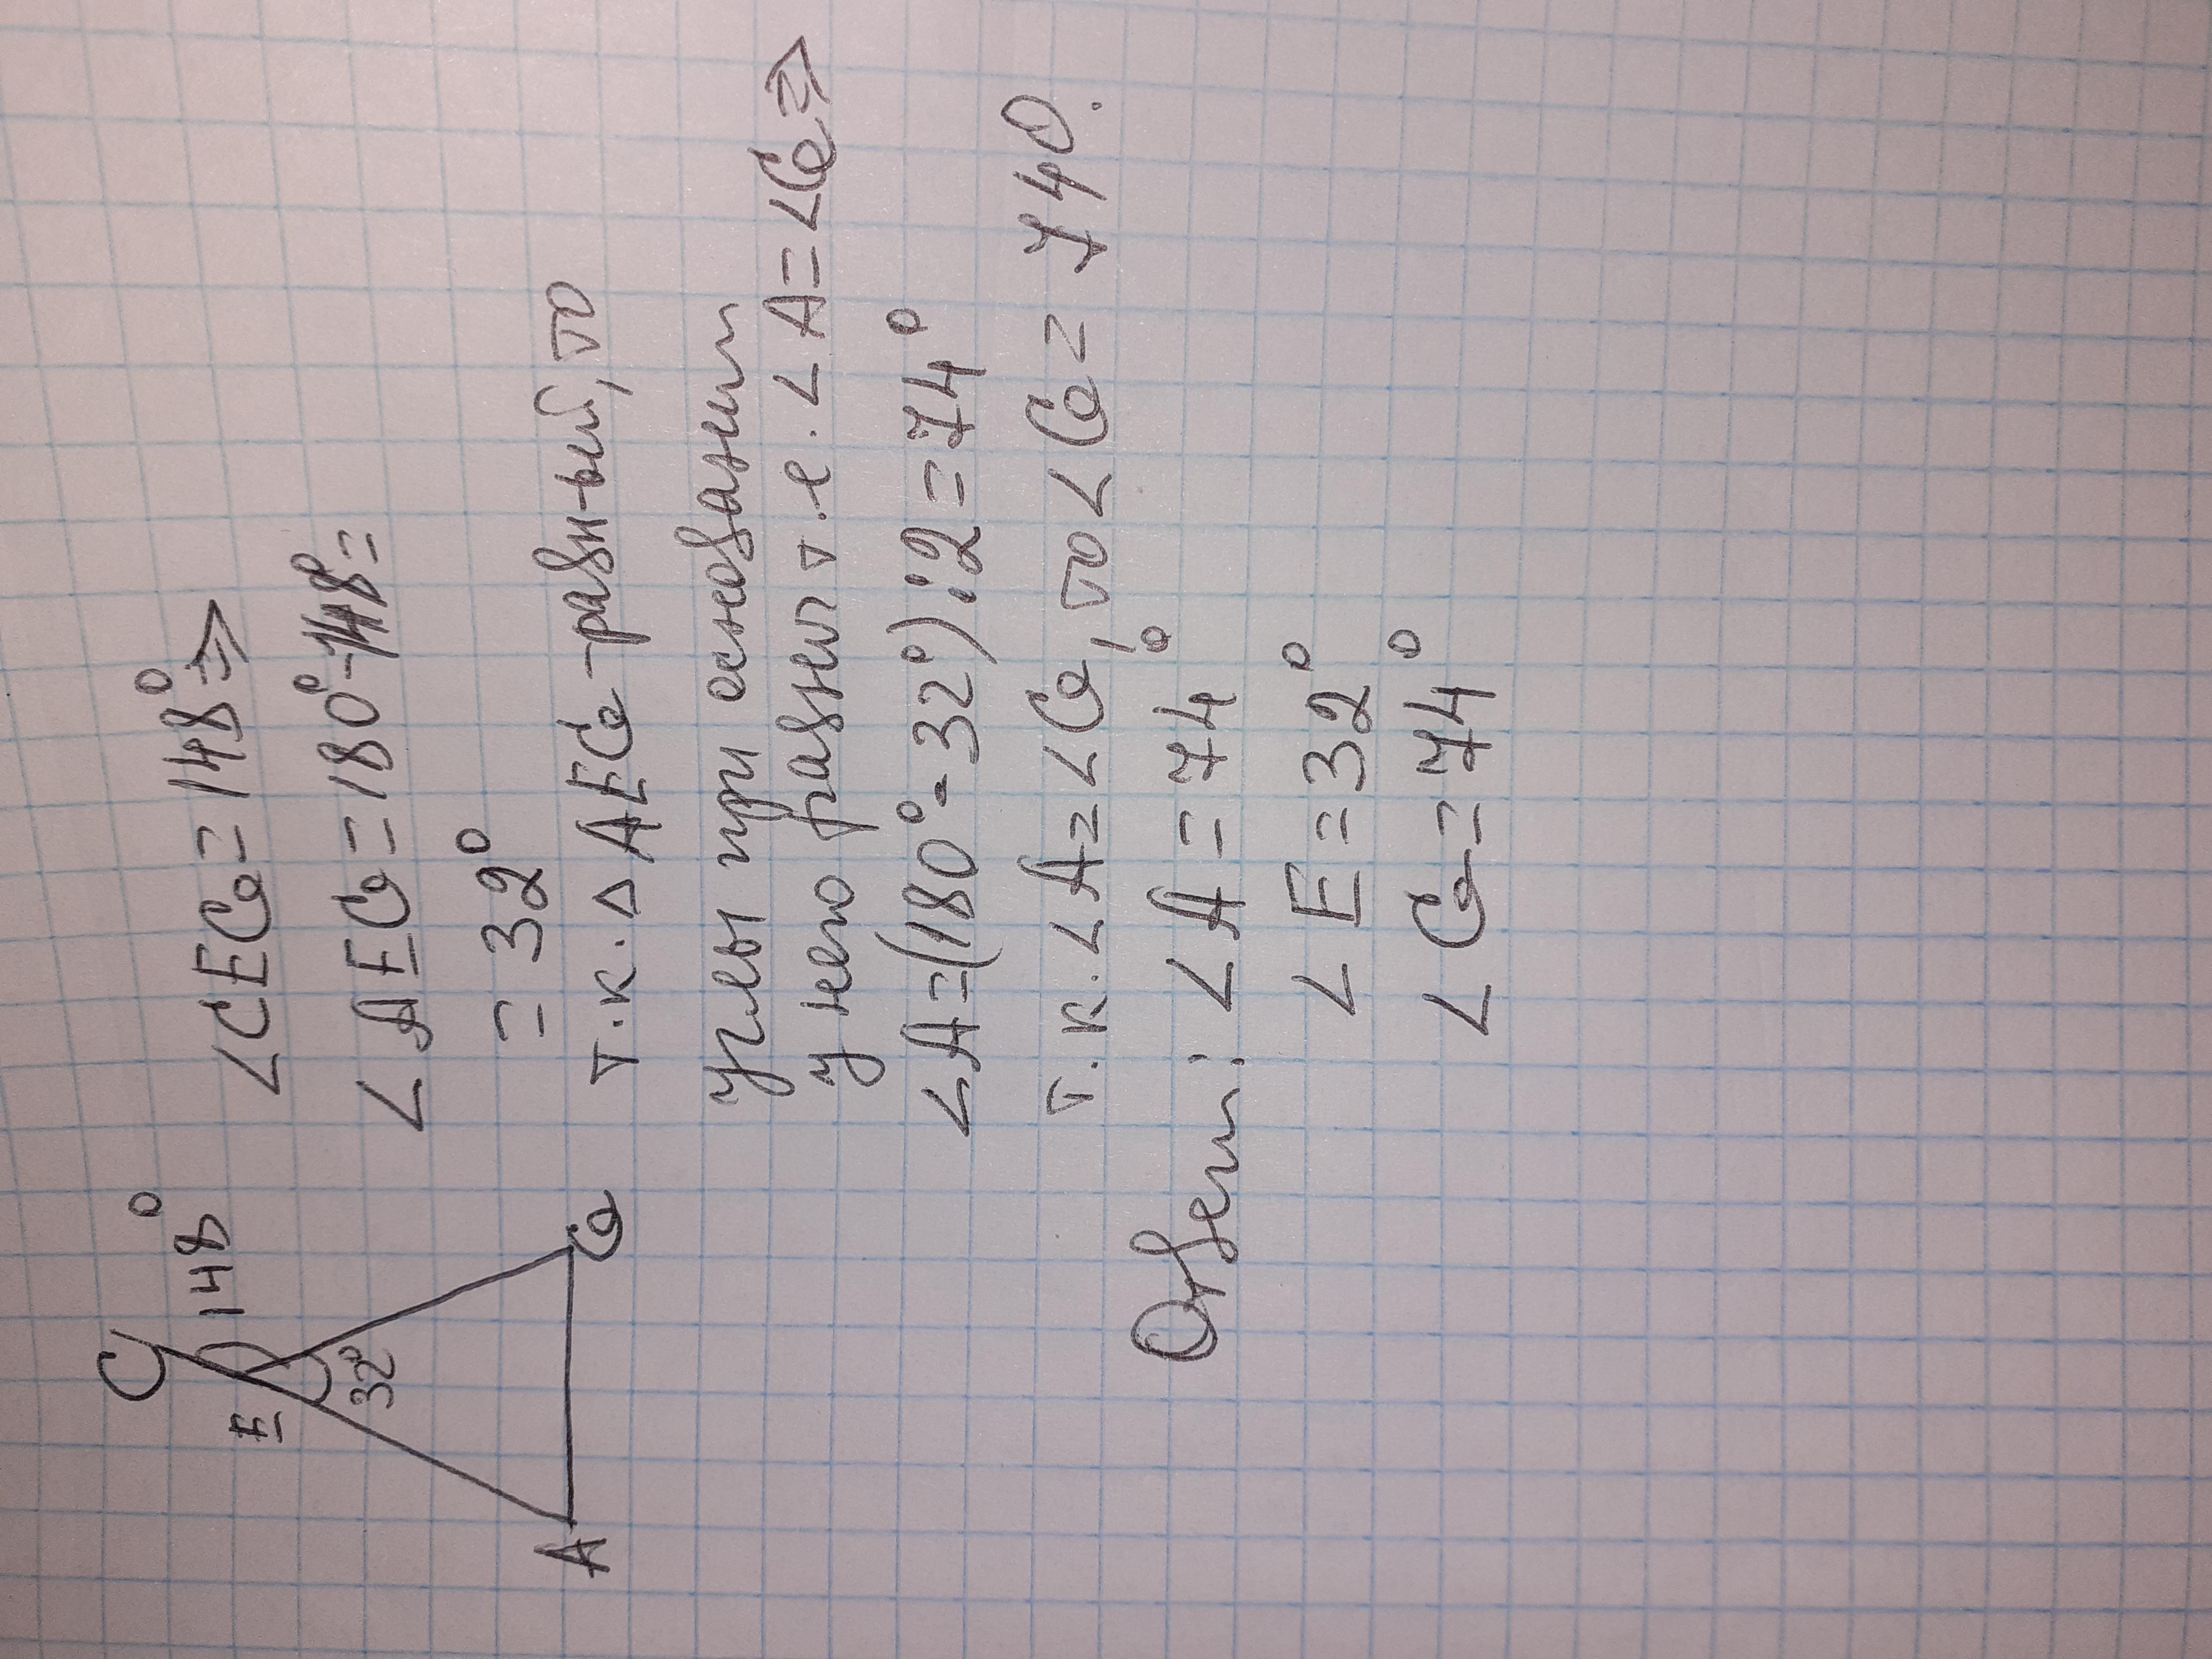 C
148°
E
32°
A
G
∠CEG=148°⇒
∠AEG=180°-148°=
=32°
т.к. ∆AEG-равн-ый, то
углы при основании
у него равны т.е. ∠A=∠G⇒
∠A=(180°-32°):2=74°
т.к. ∠A=∠G, то ∠G= 740.
Ответ: ∠A=74°
∠E=32°
∠G=74°